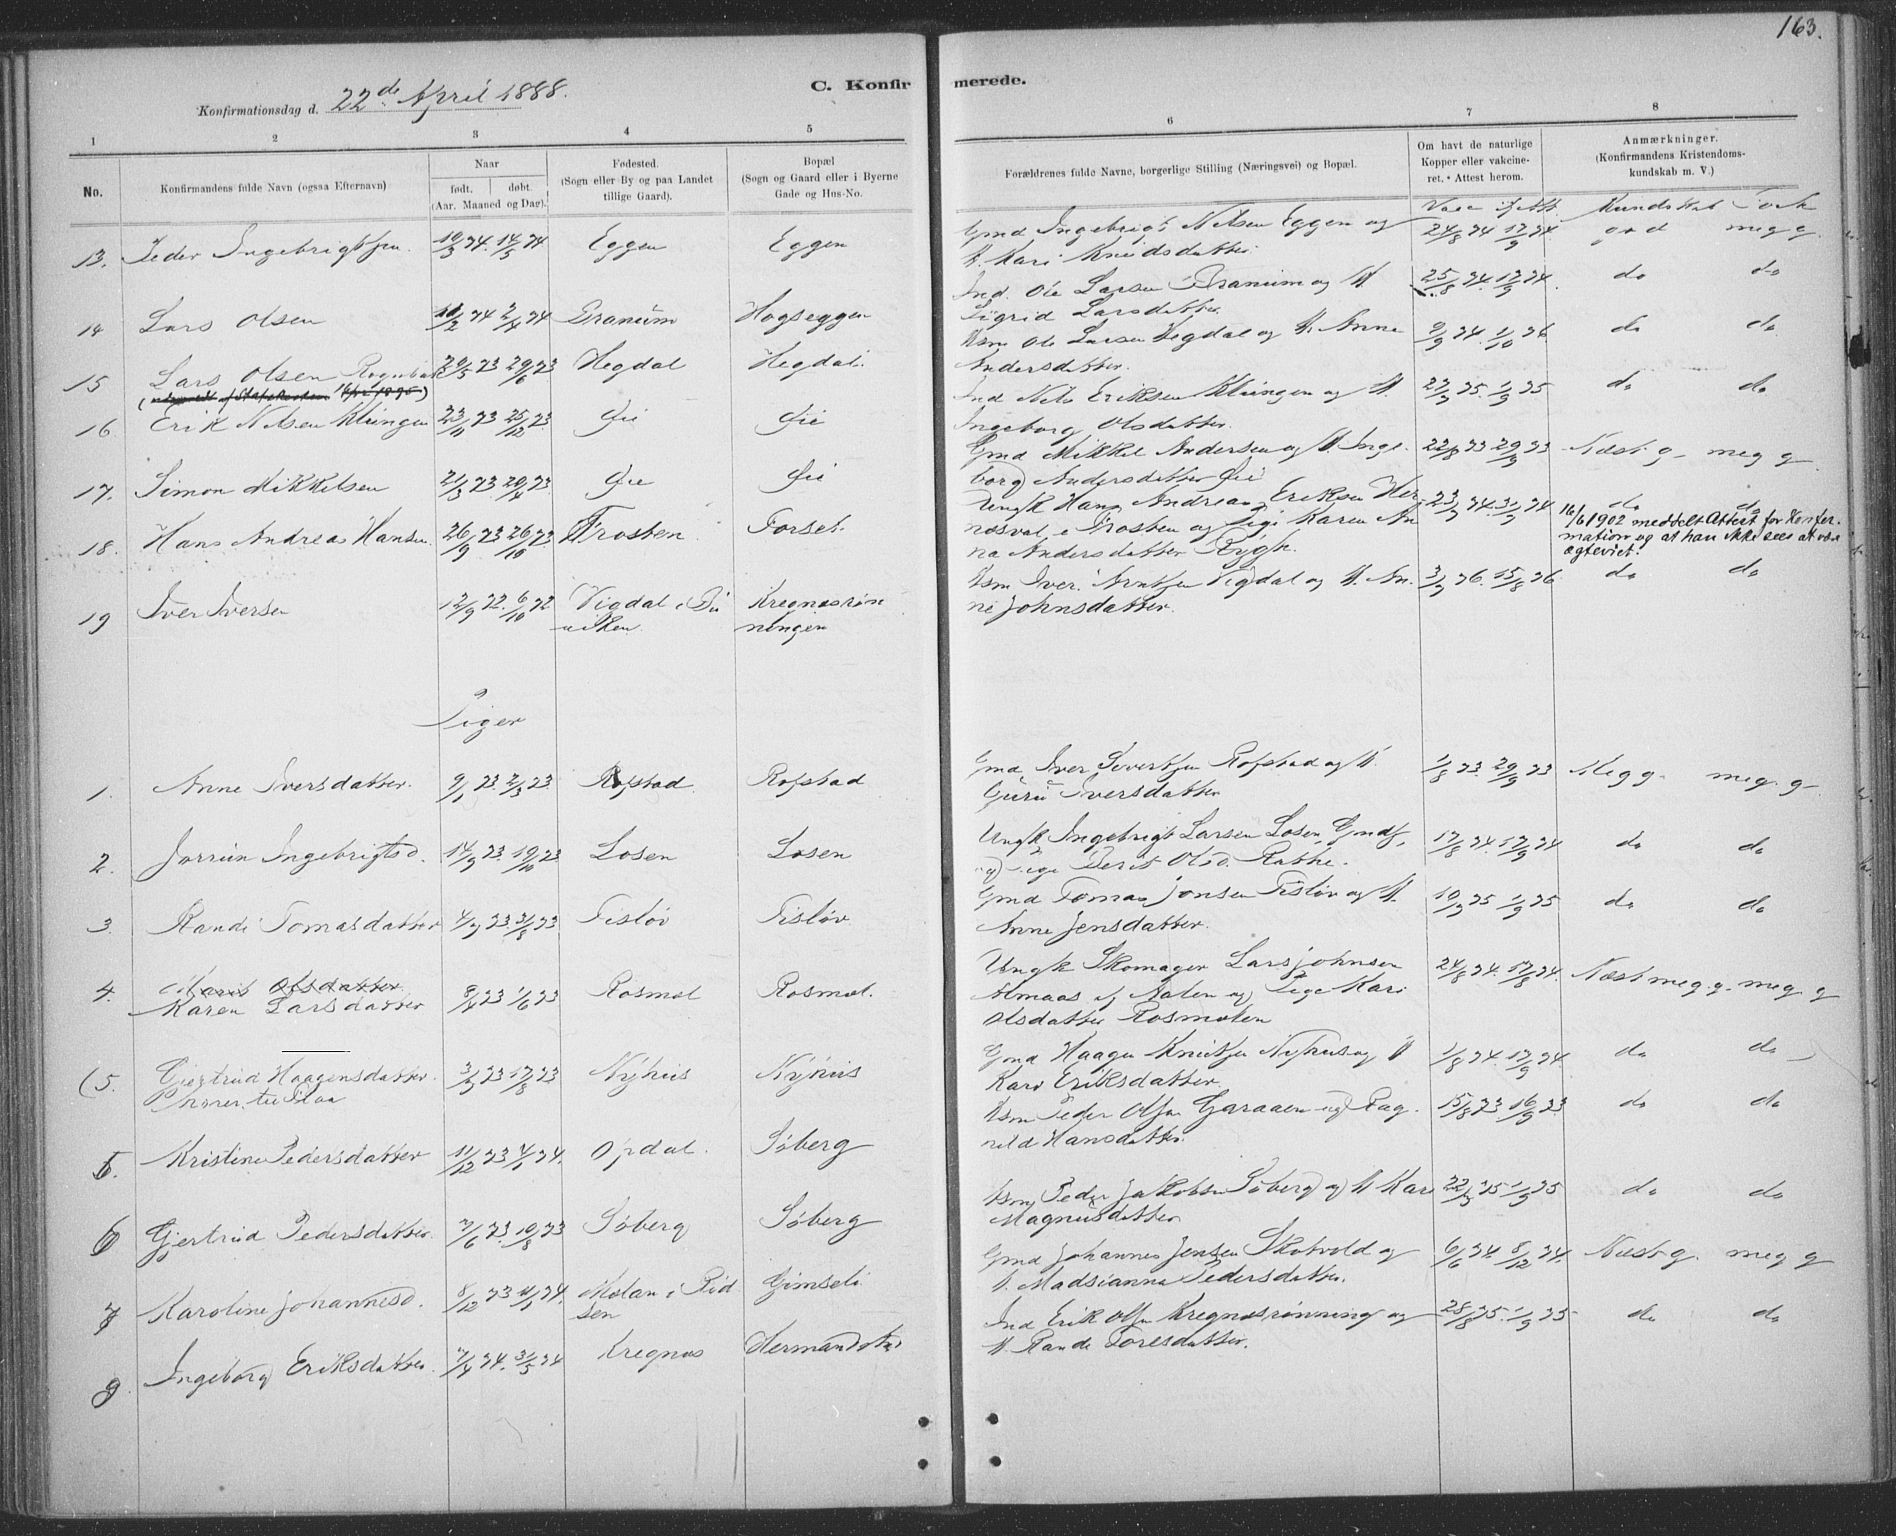 163.
C. Konfirmerede.
Konfirmationsdag d. 22de April 1888.
1 2 3 4 5 6 7 8
No.
Konfirmandens fulde Navn (ogsaa Efternavn)
Naar
født. døbt.
(Aar. Maaned og Dag).
Fødested.
(Sogn eller By og paa Landet
tillige Gaard).
Bopæl
(Sogn og Gaard eller i Byerne
Gade og Hus-No.
Forældrenes fulde Navne, borgerlige Stilling (Næringsvei) og Bopæl.
Om havt de naturlige
Kopper eller vakcine-
ret. Attest herom.
Anmærkninger.
(Konfirmandens Kristendoms-
kundskab m. V.)
Kundskab
13. Peder Ingebrigtsen 14/5 74 Eggen Eggen Gmd Ingebrigt Nilsen Eggen og 24/8 74 17/9 74. god meg g.
H. Kari Knudsdatter
14 Lars Olsen 2/4 74 Granum Hogseggen Ind. Ole Larsen Granum og H 25/8 74. 17/9 74. do do
Sigrid Larsdatter
15 Lars Olsen 29/5 73 29/6 73 Hegdal Hegdal. Hsm Ole Larsen Hegdal og H. Anne 9/9 74. 1/10 76 do do
Andersdatter.
16 Erik Nilsen Klungen 23/11 73 25/12 73 Øie Øie Ind Nils Eriksen Klungen og H. 27/7 75. 1/9 75 do do
Ingeborg Olsdatter.
17. Simon Mikkelsen 21/3 73 20/4 73 Øie Øie Gmd Mikkel Andersen og H Inge- 22/8 73 29/9 73 Næst g meg g
borg Andersdatter Øie
18. Hans Andreas Hansen 26/9 73 26/10 73 Frosten Forset. Ungk Hans Andreas Eriksen Her- 23/7 74. 31/7 74 do do
nesval, e Frosten og Pige Karen An
na Andersdatter Rygh.
16/6 1902 meddelt Attest for Konfir-
mation og at han ikke sees at være
ægteviet.
19 Iver Iversen 12/9 72. 6/10 72 Vigdal i Bu Kregnesrøn Hsm Iver Arntsen Vigdal og H. An- 3/7 76. 15/8 76 do do
viken. ningen ne Johnsdatter.
Piger
1. Anne Iversdatter. 9/1 73. 2/3 73. Rofstad Rofstad Gmd Iver Sivertsen Rofstad og H. 1/8 73. 29/9 73 Meg g. meg. g
Guru Iversdatter
2. Jorun Ingebrigtsd. 14/9 73. 19/10 73 Losen Losen Ungk Ingebrigt Larsen Losen, Gmds, 17/8 74. 17/9 74 do do
og Pige Berit Olsd.
3. Randi Tomasdatter 4/7 73. 3/8 73 Tisløv Tisløv. Gmd Tomas Jonsen Tisløv og H. 10/7 75 1/9 75 do do
Anne Jensdatter.
4. Marit Olsdatter
Karen Larsdatter 8/4 73 1/6 73 Rosmol Rosmol. Ungk Skomager Lars Johnsen 24/8 74. 17/8 74. Næst meg. g. meg. g
Almaas af Aalen og Pige Kari
Olsdatter Rosmolen
(5. Gjertrud Haagensdatter. 3/7 73 17/8 73 Nyhus Nyhus Gmd Haagen Knutsen Nyhus og H 1/8 74. 17/9 74. do do
hører til Flaa Kari Eriksdatter.
5. Kristine Pedersdatter 11/12 73 4/1 74. Opdal. Søberg Hsm Peder Olsen Garaaen og Rag- 15/8 73 16/9 73 do do
nild Hansdatter.
6 Gjertrud Pedersdatter. 7/6 73. 10/8 73 Søberg Søberg Hsm Peder Jakobsen Søberg og H Kari 22/7 75 1/9 75 do do
Magnusdatter
7 Karoline Johannesd. 8/12 73 4/1 74. Molan i Bud Gimseli Gmd Johannes Jensen Skotvold og 6/6 74. 8/12 74. Næst g. meg g
sen H. Madsianna Pedersdatter.
8 Ingeborg Eriksdatter. 7/4 74. 31/5 74 Kregnes Ind Erik Olsen Kregnesrønning og 28/8 75. 1/9 75 do do
H Randi Toresdatter.